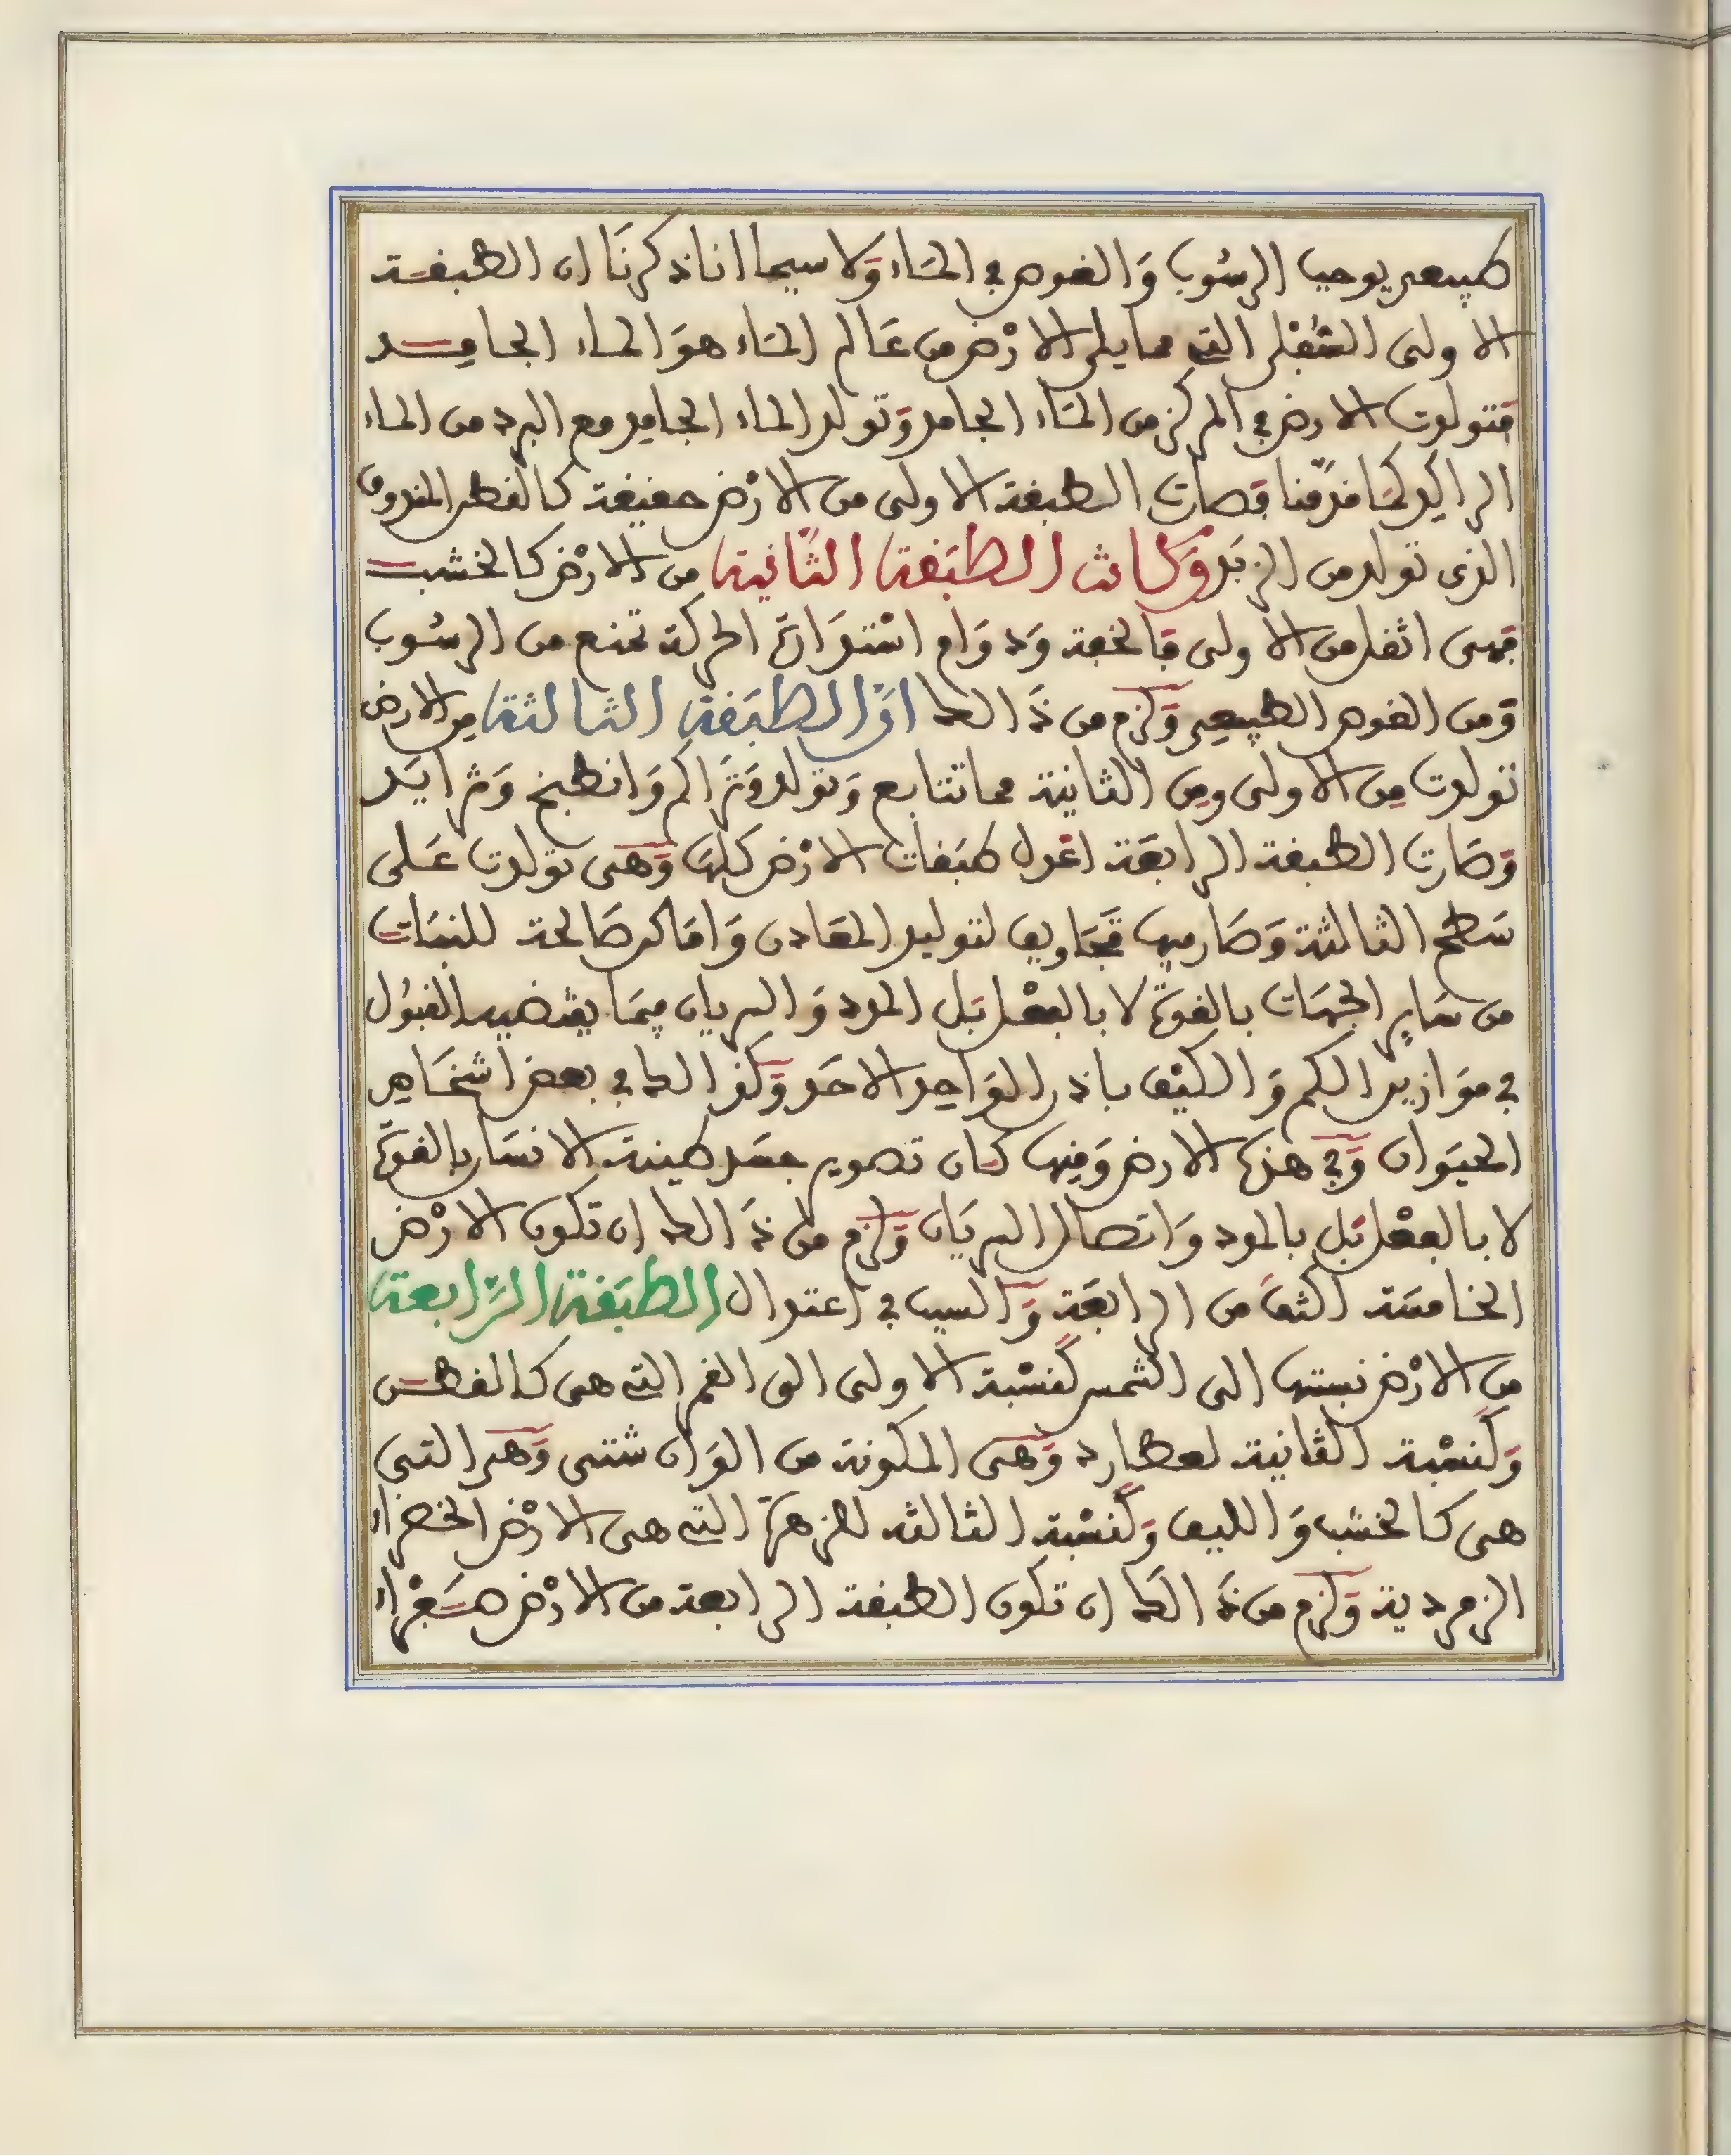 طبيعى يوجب الرسُوب وَالغوص في المَاء وَلا سيما اناذكرنَا ان الطبقة
الاولى السُّفْلى التى مما يلى الارْض من عَالم المَاء هوَ الماء الجامِد
فتولدت الارض في المركز من المَاء الجامد وَتولد الماء الجامِد مع البرد من الماء
الراكِد لمَا قدّمنا فصَارت الطبقة الاولى من الارْض حفيفة كالقطن المندوف
الذى تولد من الزبَد وَكانت الطبَقة الثَّانية من الارْض كالخشب
فهى اثقل من الاولى فالخفة وَدوَام اسْتدَارة الحركة تمنع من الرسُوب
وَمن الغوص الطبيعِى وَلزم من ذَالك انَّ الطبَقة الثالثة مِن الارض
تولدت مِن الاولى ومِن الثانية مما تتابع وَتولد وَتَرَاكم وَانطبخ وَتزايَد
وَصَارت الطبقة الرابعَة اعْدل طبَقات الارْض كلهَا وَهى تولدت عَلى
سَطح الثالثة وَصَار فيها تجَاويف لتوليد المعَادن وَامَاكن صَالحة للنبَات
من سَايِر الجهَات بالقوة لا بالفعْل بَل المدد وَالسريان فِيمَا يقتضيه القبُول
في موَازين الكم وَالكيْف باذن الوَاحِد الاحَد وَكذالك في بعض اشخَاص
الحيَوان وَفي هذه الارض وَفِيها كان تصوير جسَد طينة الانسَان بالقوّة
لا بالفعْل بَل بالمدد وَاتصال السريَان وَلزم من ذَالك ان تكون الارْض
الخامسَة الثفَ من الرابعَة وَالسبب في اعتدال الطبَقة الرَّابعة
مِن الارْض نسبتها الى الشمس كنسْبة الاولى الى القمر التى هى كالقطن
وَكنسْبة الثانية لعطارد وَهى المكونة من الوَان شتى وَهى التى
هى كالخشب وَالليف وَكنسْبة الثالثه للزهرَة التى هى الارْض الخضراء
الزمردية وَلزم من ذَالك ان تكون الطبقة الرابعة من الارْض صَفْراء